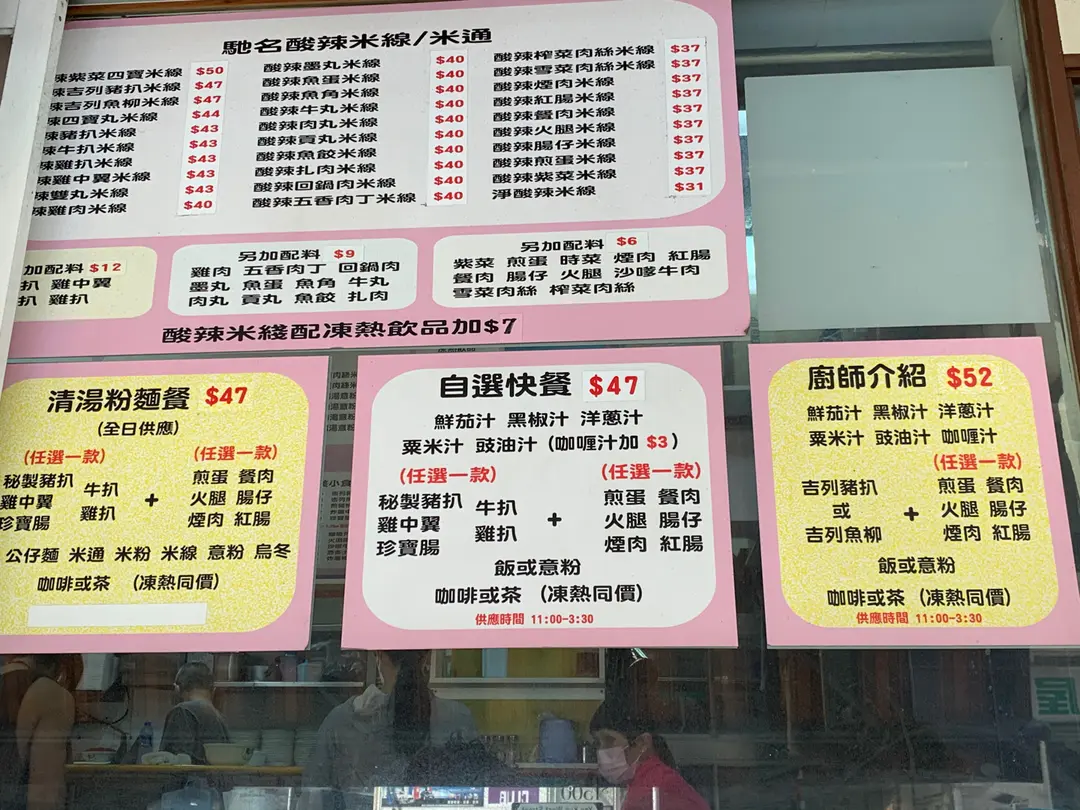 馳名酸辣米線/米通
辣紫菜四寶米線 $50
辣吉列豬扒米線 $47
辣吉列魚柳米線 $47
辣四寶丸米線 $44
辣豬扒米線 $43
辣牛扒米線 $43
辣雞扒米線 $43
辣雞中翼米線 $43
辣雙丸米線 $43
辣雞肉米線 $40
酸辣墨丸米線 $40
酸辣魚蛋米線 $40
酸辣魚角米線 $40
酸辣牛丸米線 $40
酸辣肉丸米線 $40
酸辣貢丸米線 $40
酸辣魚餃米線 $40
酸辣扎肉米線 $40
酸辣回鍋肉米線 $40
酸辣五香肉丁米線 $40
酸辣榨菜肉絲米線 $37
酸辣雪菜肉絲米線 $37
酸辣煙肉米線 $37
酸辣紅腸米線 $37
酸辣餐肉米線 $37
酸辣火腿米線 $37
酸辣腸仔米線 $37
酸辣煎蛋米線 $37
酸辣紫菜米線 $37
淨酸辣米線 $31
加配料 $12
扒 雞中翼
扒 雞扒
另加配料 $9
雞肉 五香肉丁 回鍋肉
墨丸 魚蛋 魚角 牛丸
肉丸 貢丸 魚餃 扎肉
另加配料 $6
紫菜 煎蛋 時菜 煙肉 紅腸
餐肉 腸仔 火腿 沙嗲牛肉
雪菜肉絲 榨菜肉絲
酸辣米綫配凍熱飲品加$7
清湯粉麵餐 $47
(全日供應)
(任選一款) (任選一款)
秘製豬扒 牛扒 煎蛋 餐肉
雞中翼 雞扒 + 火腿 腸仔
珍寶腸 煙肉 紅腸
公仔麵 米通 米粉 米線 意粉 烏冬
咖啡或茶 (凍熱同價)
自選快餐 $47
鮮茄汁 黑椒汁 洋蔥汁
粟米汁 豉油汁 (咖喱汁加 $3)
(任選一款) (任選一款)
秘製豬扒 牛扒 煎蛋 餐肉
雞中翼 雞扒 + 火腿 腸仔
珍寶腸 煙肉 紅腸
飯或意粉
咖啡或茶 (凍熱同價)
供應時間 11:00-3:30
廚師介紹 $52
鮮茄汁 黑椒汁 洋蔥汁
粟米汁 豉油汁 咖喱汁
(任選一款)
吉列豬扒 煎蛋 餐肉
或 + 火腿 腸仔
吉列魚柳 煙肉 紅腸
飯或意粉
咖啡或茶 (凍熱同價)
供應時間 11:00-3:30